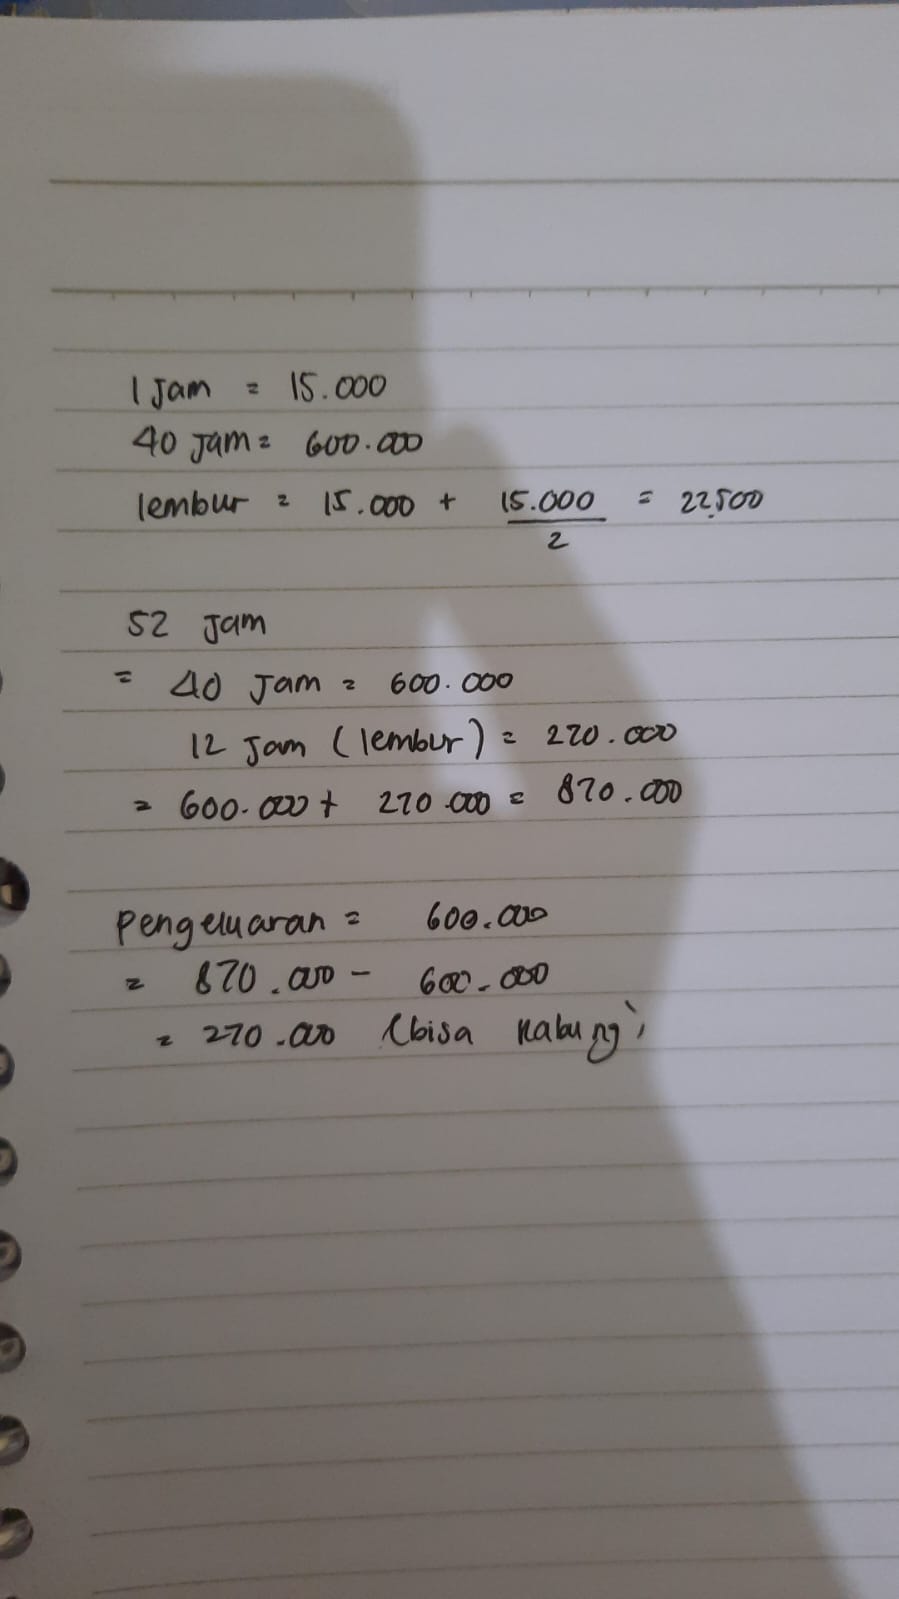 1 Jam = 15.000
40 Jam = 600.000
lembur = 15.000 + 15.000/2 = 22.500
52 Jam
= 40 Jam = 600.000
12 Jam (lembur) = 270.000
= 600.000 + 270.000 = 870.000
Pengeluaran = 600.000
= 870.000 - 600.000
= 270.000 (bisa nabung)